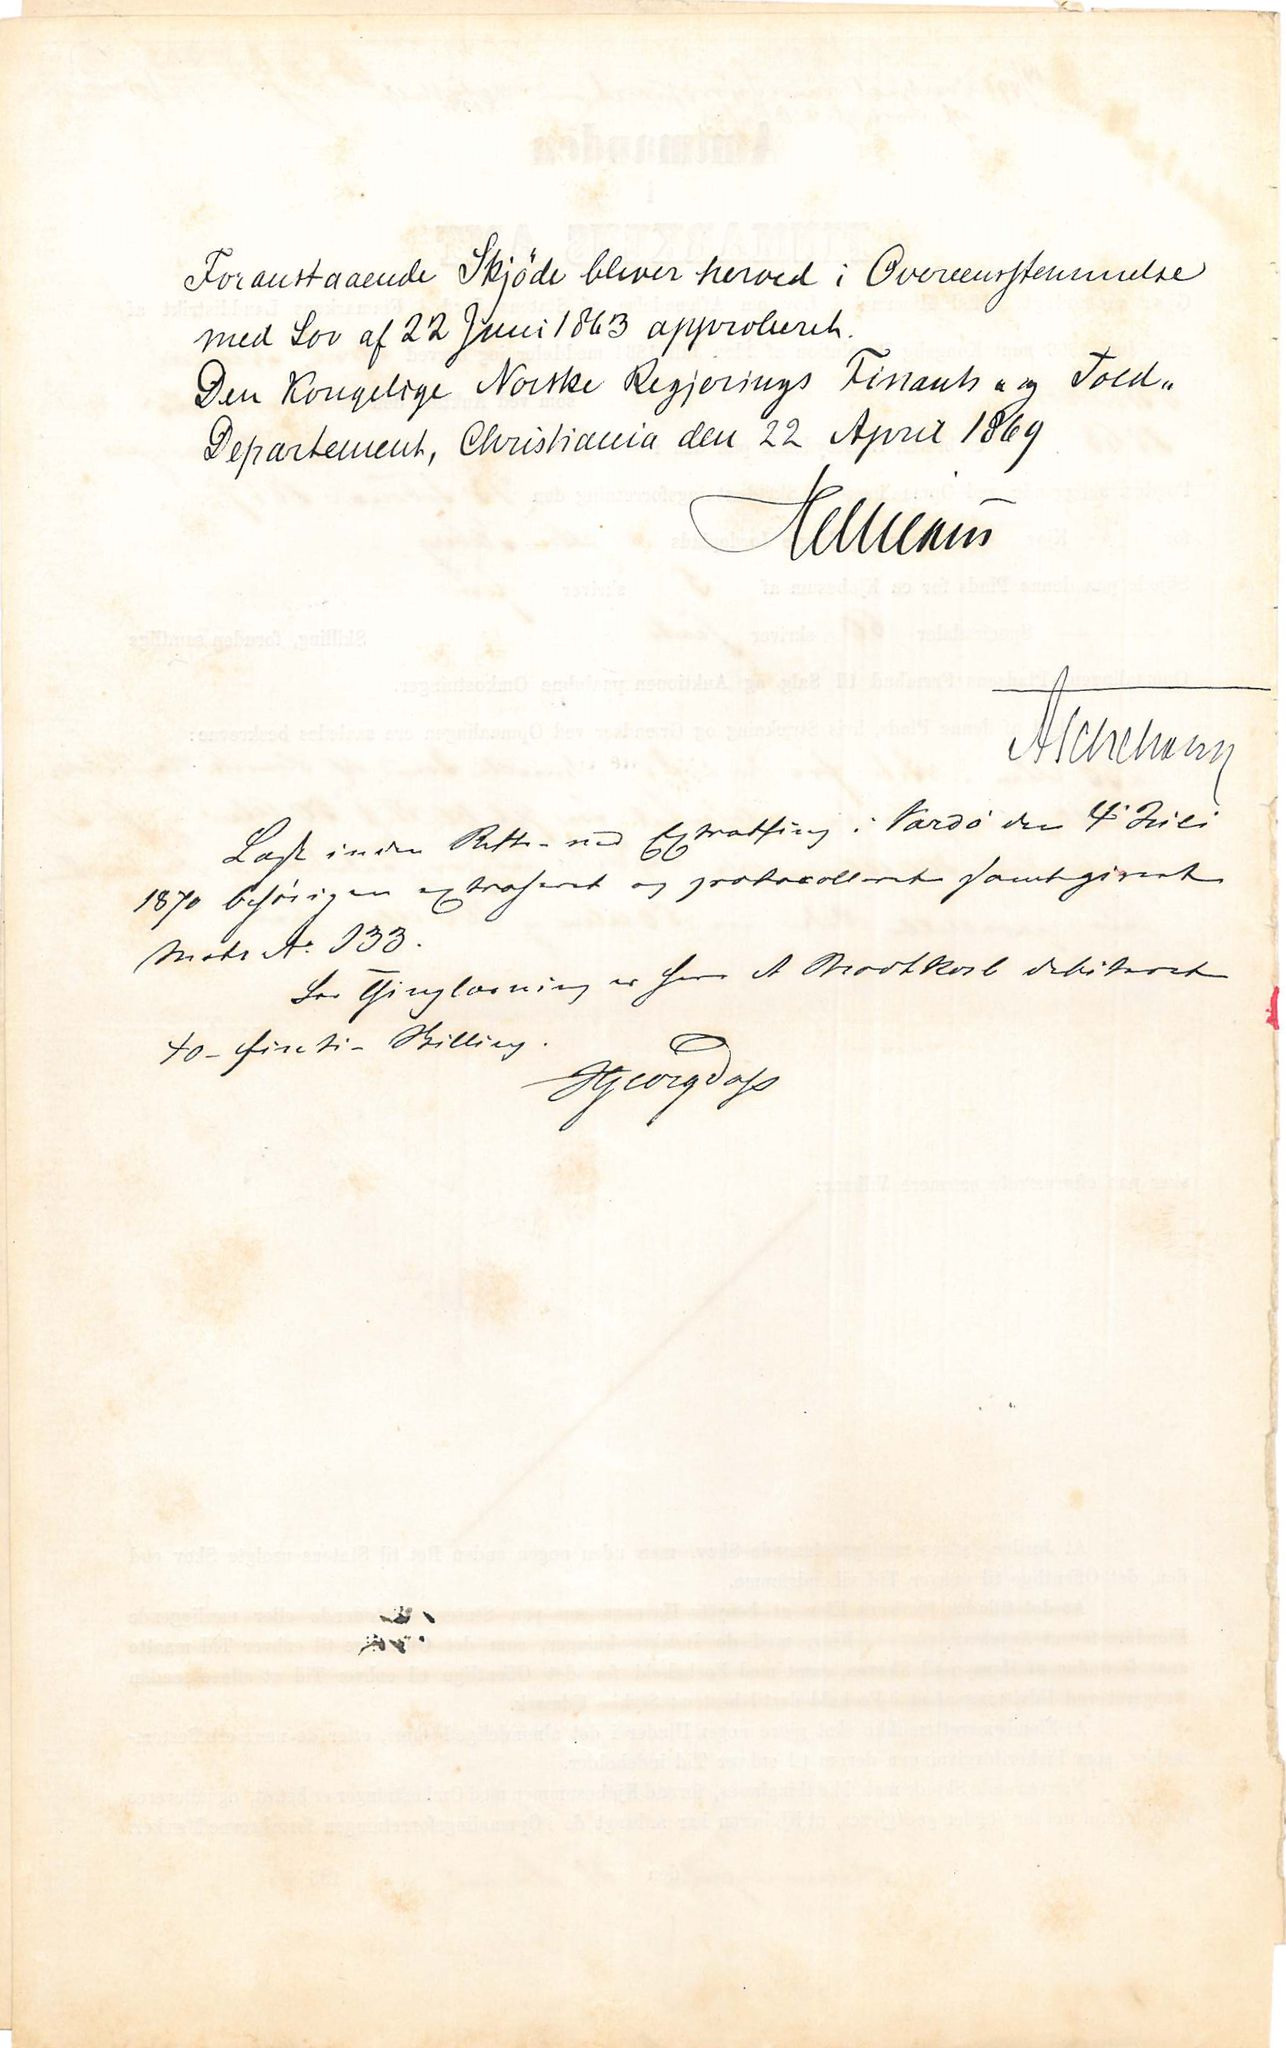 Foranstaaende Skjöde bliver herved i Overeensstemmelse
med Lov af 22 Juni 1863 approberet.
Den Kongelige Norske Regjerings Finants- og Told-
Departement, Christiania den 22 April 1869
Helliesen
Aschehoug
Læst inden Retten ved Extrathing i Vardö den 4' Juli
1870 behörigen extraheret og protocolleret samt givet
Matr N: 133.
For Thinglæsning er Herr A Brodtkorb debiteret
40 - fireti - Skilling.